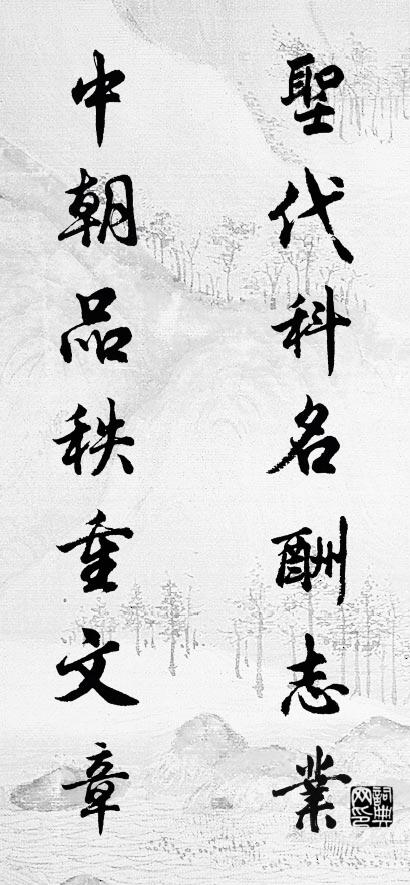 聖代科名酬志業
中朝品秩重文章
詞典
网印